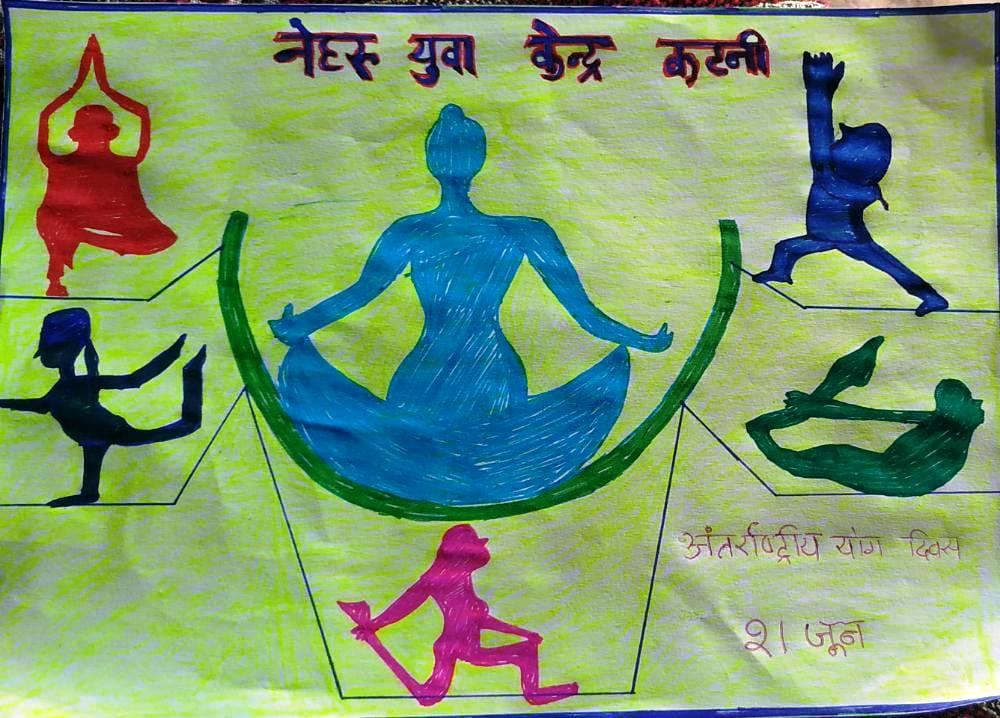 नेहरू युवा केन्द्र कटनी
अंतर्राष्ट्रीय योग दिवस
२१ जून